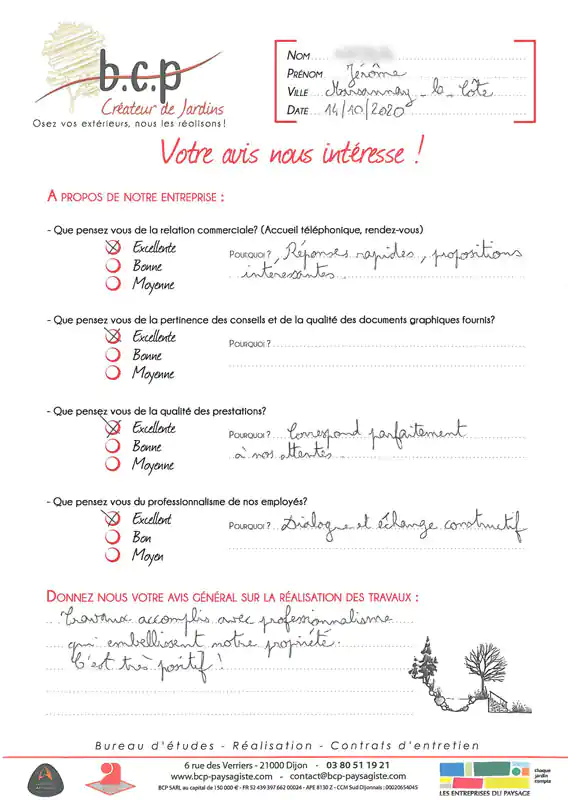 b.c.p
Créateur de Jardins
Osez vos extérieurs, nous les réalisons !
NOM
PRÉNOM Jérôme
VILLE Marsannay-la-Côte
DATE 14/10/2020
Votre avis nous intéresse !
A PROPOS DE NOTRE ENTREPRISE :
- Que pensez vous de la relation commerciale? (Accueil téléphonique, rendez-vous)
Excellente
Bonne
Moyenne
POURQUOI ? Réponses rapides, propositions
intéressantes
- Que pensez vous de la pertinence des conseils et de la qualité des documents graphiques fournis?
Excellente
Bonne
Moyenne
POURQUOI ?
- Que pensez vous de la qualité des prestations?
Excellente
Bonne
Moyenne
POURQUOI ? Correspond parfaitement
à nos attentes
- Que pensez vous du professionnalisme de nos employés?
Excellent
Bon
Moyen
POURQUOI ? Dialogue et échange constructif
DONNEZ NOUS VOTRE AVIS GÉNÉRAL SUR LA RÉALISATION DES TRAVAUX :
Travaux accomplis avec professionnalisme
qui embellissent notre propriété.
C'est très positif !
Bureau d'études - Réalisation - Contrats d'entretien
6 rue des Verriers - 21000 Dijon - 03 80 51 19 21
www.bcp-paysagiste.com - contact@bcp-paysagiste.com
BCP SARL au capital de 150 000 € - FR 52 439 397 662 00024 - APE 8130 Z - CCM Sud Dijonnais : 00020654045
LES ENTREPRISES DU PAYSAGE
chaque
jardin
compte